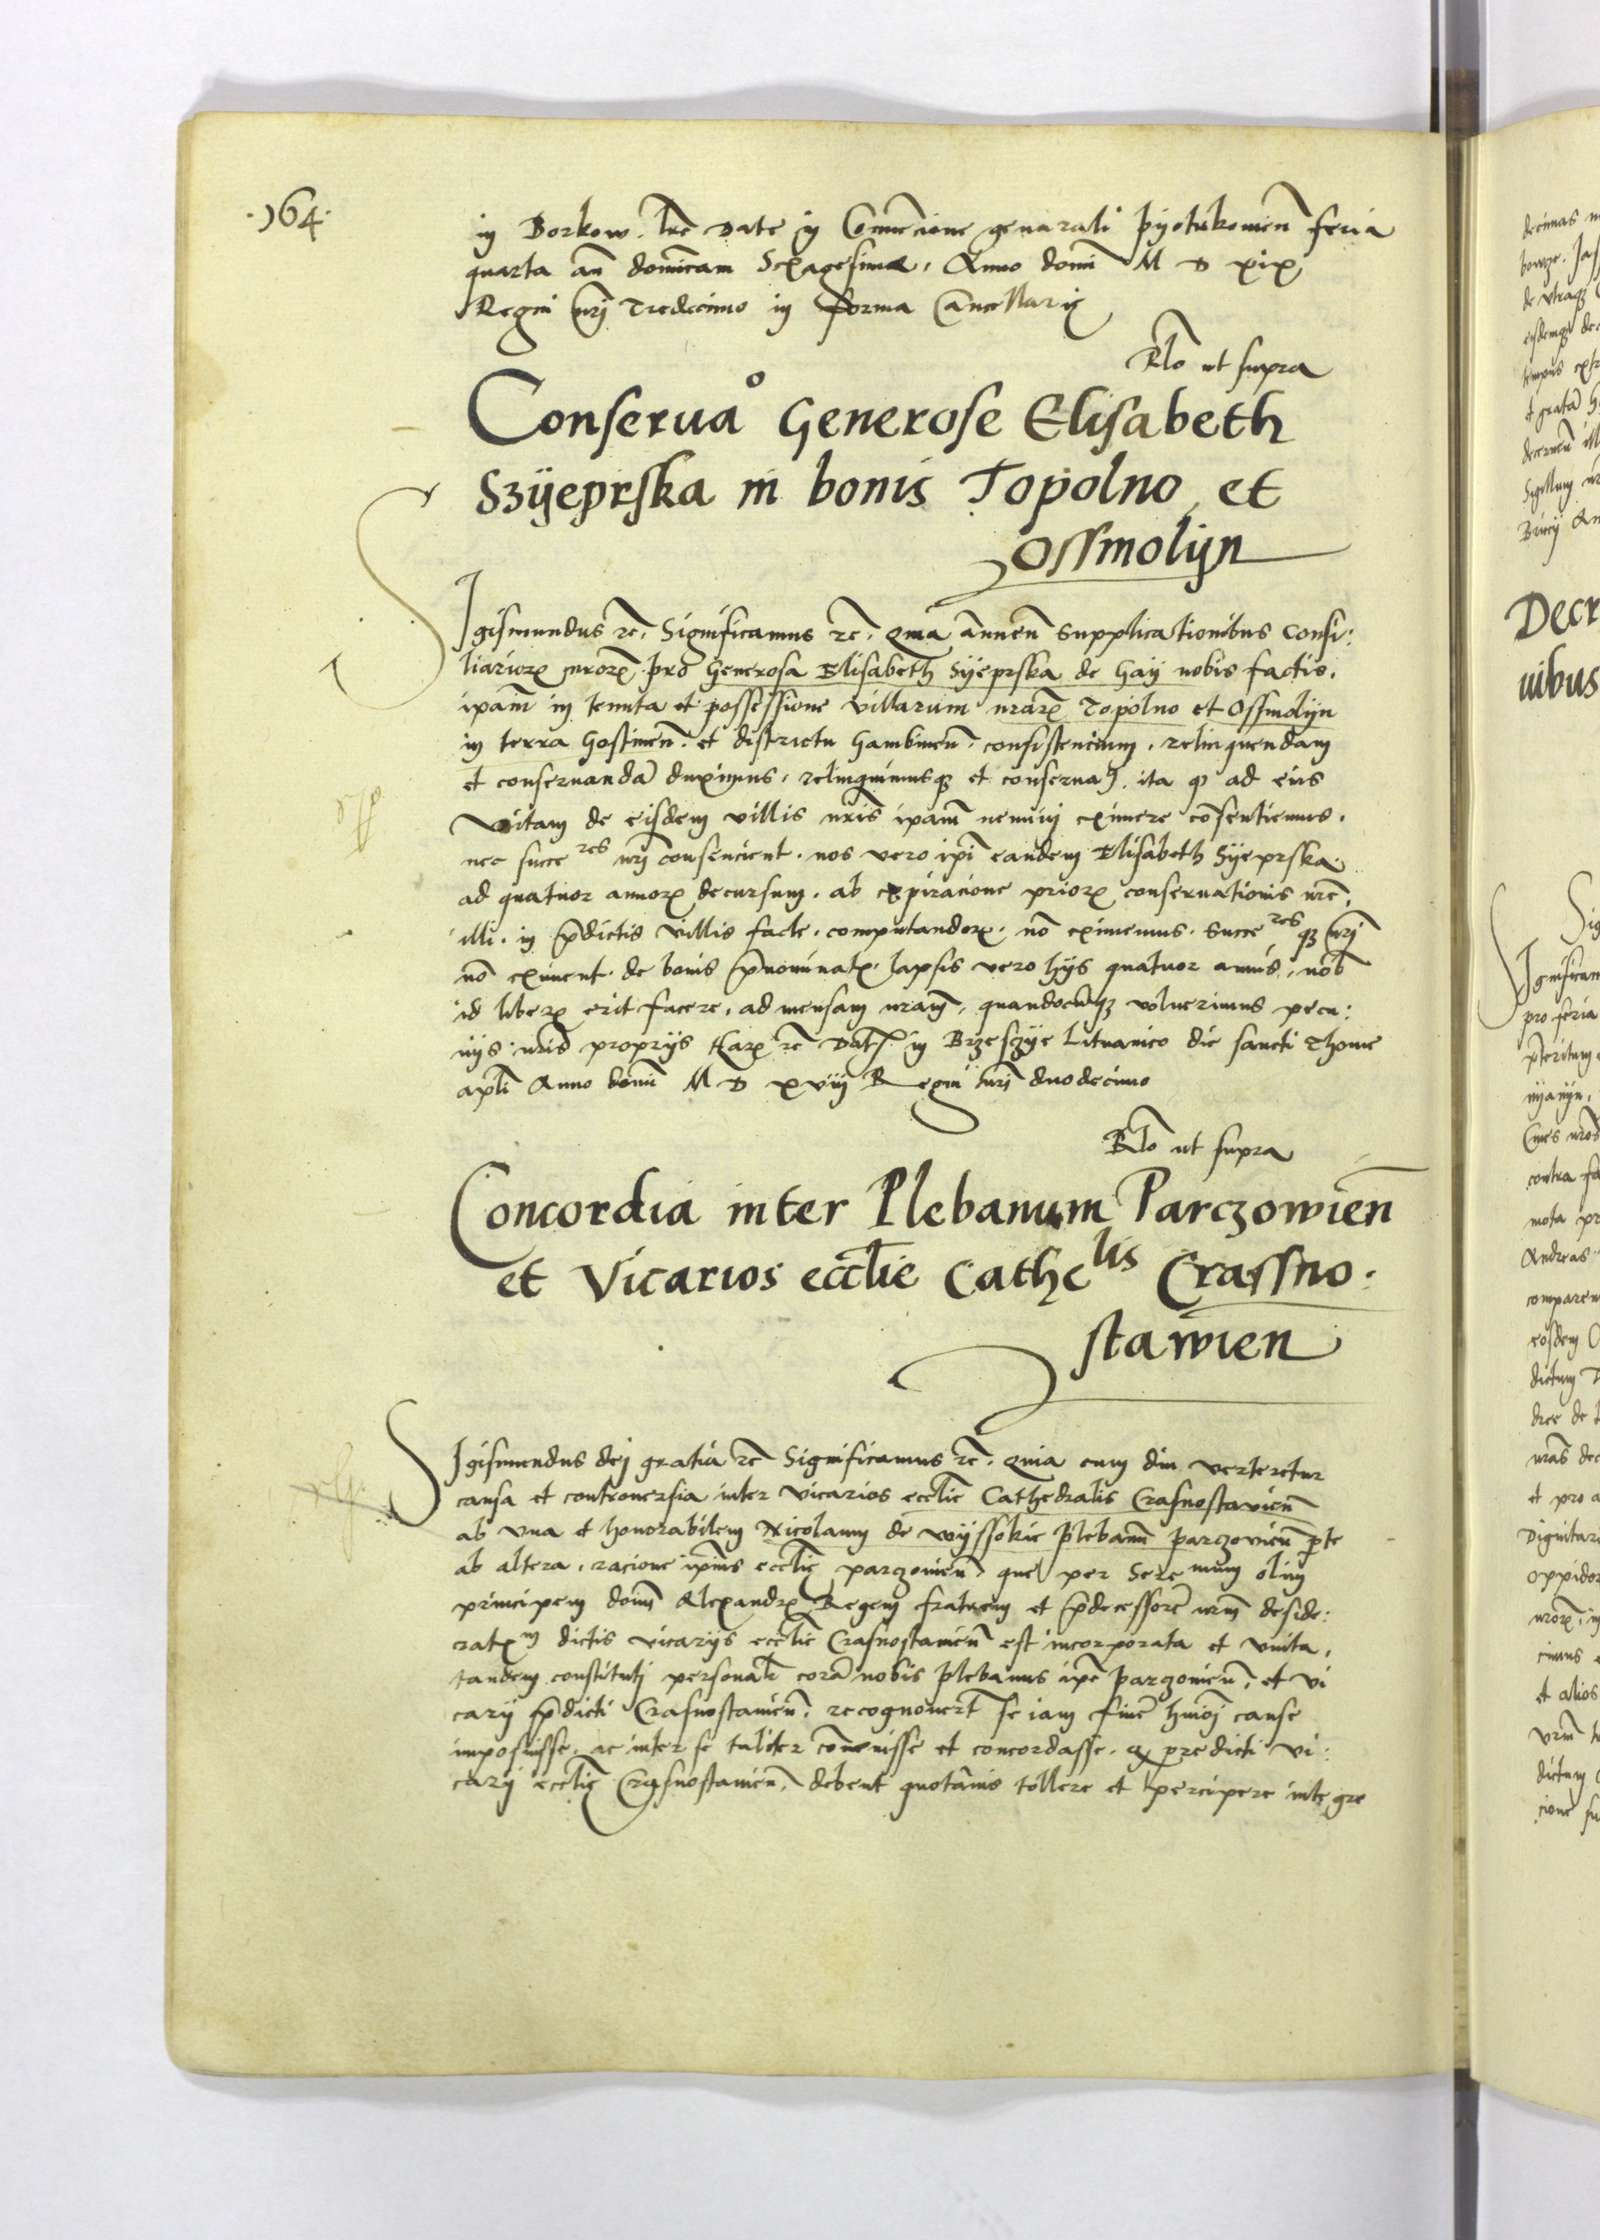 ·164·
in Borkow. lr̃e Date in Convẽcione genarali pyotrkowieñ feria
quarta añ domĩcam Sexagesime, Anno domĩ M D xix
Regni ñrj Tredecimo in forma Cancellarie
Rl̃o ut supra
Conseruaᵒ Generose Elisabeth
Szyeprska in bonis Topolno et
Ossmolyn
Sigismundus rc̃. Significamus rc̃. Quia ãnueñ supplicationibus consi:
liariorꝝ nr̃orꝝ pro Generosa Elisabeth Syeprska de Gay nobis factis.
ipam̃ in tenuta et possessione villarum nr̃arꝝ Topolno et Ossmolyn
in terra Gostineñ. et districtu Gambineñ. consistencium. relinquendam
et conseruandã duximus. relinquimusqꝫ et conserua. ita ꝙ ad eius
vitam de eisdem villis nr̃is ipam̃ nemini eximere cõsentiemus.
nec succeʳᵉˢ nr̃j consencient. nos vero ipi̇̃ eandem Elisabeth Syeprska
ad quatuor annorꝝ decursum. ab expiracione priorꝝ conseruationis nr̃e,
illi. in p̃dictis villis facte. computandorꝝ. nõ eximemus. Succeʳᵉˢqꝫ nr̃j
nõ eximent. de bonis p̃nominatꝭ. lapsis vero hijs quatuor annis, nob̃
id liberꝝ erit facere, ad mensam nr̃am, quandocũqꝫ voluerimus pecu:
nijs nr̃is proprijs Harꝝ rc̃ Datꝭ in Brzesczye Lituanico die sancti Thome
apl̃i Anno domĩ M D xviij Regni nr̃j duodecimo
Rl̃o ut supra
Concordia inter Plebanum Parczowieñ
et Vicarios eccl̃ie Catheˡⁱˢ Crassno:
stawien
Sigismundus dej gratia rc̃ Significamus rc̃. Quia cum diu verteretur
causa et controuersia inter vicarios eccl̃ie Cathedralis Crasnostavieñ
ab vna et honorabilem Nicolaum de wyssokie plebanũ parczovieñ p̃te
ab altera, racione ip̃ius eccl̃ie parczowieñ. que per Sereⁿⁱᵐᵘᵐ olim
principem domĩ Alexandrꝝ Regem fratrem et p̃decessorẽ nrm̃ deside:
ratꝭᵐ dictis vicarijs eccl̃ie Crasnostauieñ est incorporata et vnita,
tandem constitutj personalr̃ corã nobis plebanus ip̃e parczowieñ, et vi
carij p̃dicti Crasnostauieñ. recognouert̃ se iam finẽ hmõj cause
imposuisse. ac inter se taliter cõuenisse et concordasse. ꝙ predicti vi:
carij eccl̃ie Crasnostauieñ. debent quotãnis tollere et percipere integre